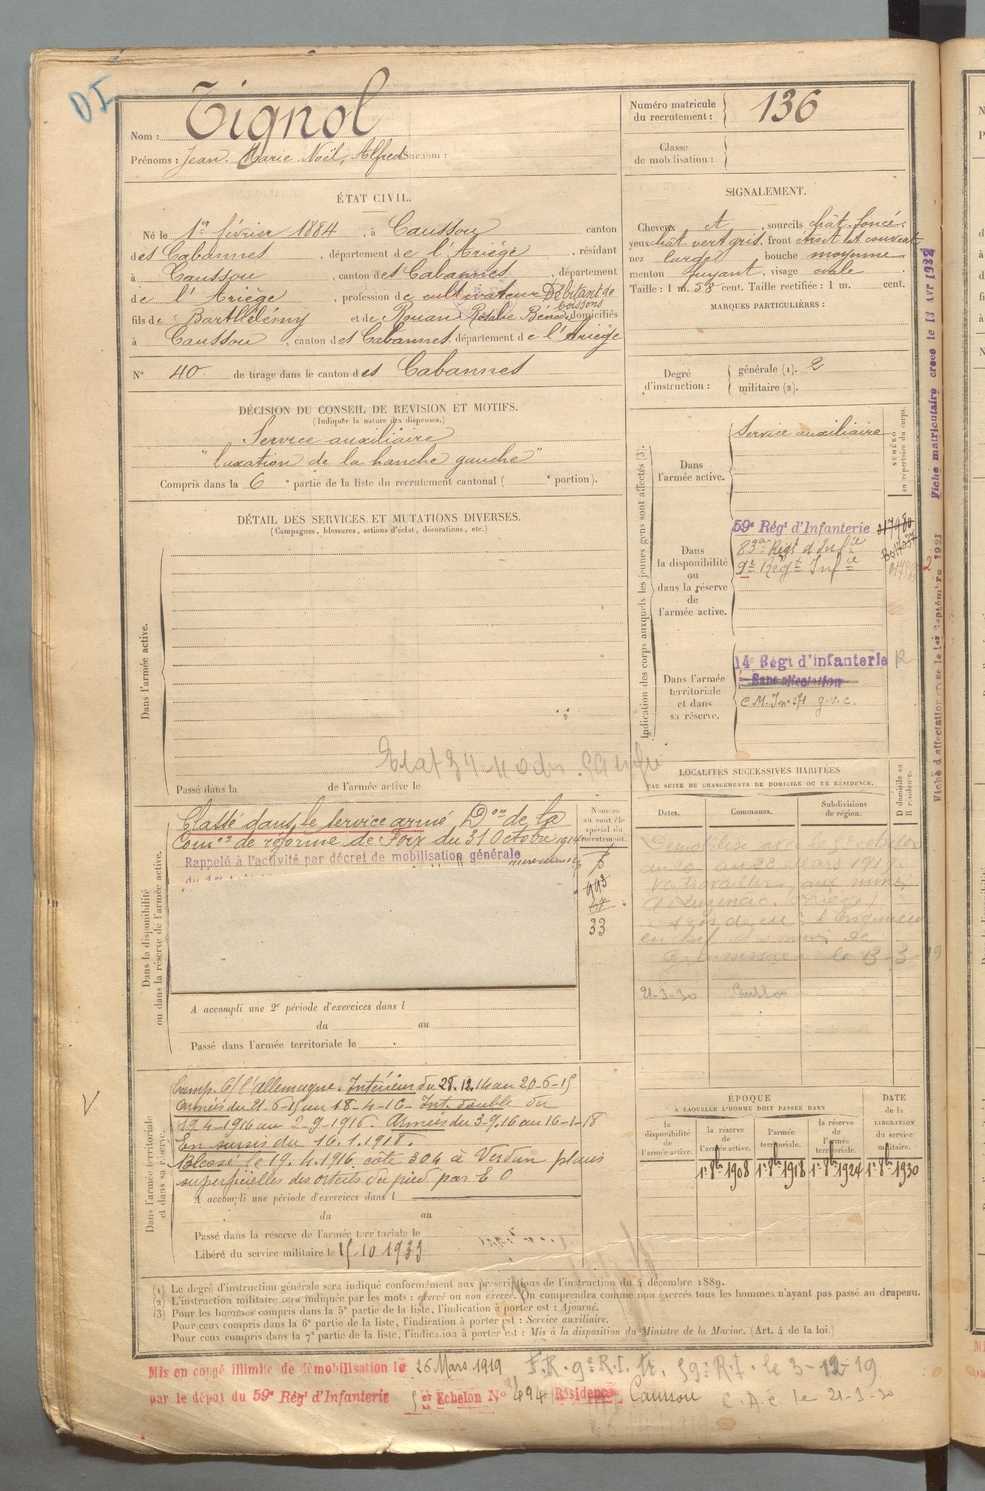 DI
Nom : Tignol
Prénoms : Jean Marie Noël, Alfred Surnom :
Numéro matricule du recrutement : 136
Classe de mobilisation :
ÉTAT CIVIL.
Né le 1er février 1884, à Caussou canton
des Cabannes, département de l'Ariège, résidant
à Caussou, canton des Cabannes, département
de l'Ariège, profession de cultivateur Débitant de boissons
fils de Barthélémy et de Rouan Rosalie Bénéd. domiciliés
à Caussou, canton des Cabannes, département de l'Ariège
N° 40 de tirage dans le canton des Cabannes
SIGNALEMENT.
Cheveux et sourcils chât. foncé
yeux chât. vert gris, front étroit et couvert
nez large bouche moyenne
menton fuyant, visage ovale
Taille : 1 m. 58 cent. Taille rectifiée : 1 m. cent.
MARQUES PARTICULIÈRES :
Degré d'instruction : générale (1). 2
militaire (2).
DÉCISION DU CONSEIL DE REVISION ET MOTIFS.
(Indiquer la nature des dispenses.)
Service auxiliaire
"luxation de la hanche gauche"
Compris dans la 6e partie de la liste du recrutement cantonal ( e portion).
DÉTAIL DES SERVICES ET MUTATIONS DIVERSES.
(Campagnes, blessures, actions d'éclat, décorations, etc.)
Dans l'armée active.
Passé dans la de l'armée active le
Indication des corps auxquels les jeunes gens sont affectés (3).
NUMÉRO au répertoire du corps.
Dans l'armée active.
Service auxiliaire
Dans la disponibilité ou dans la réserve de l'armée active.
59e Régt d'Infanterie
83me Régt d'Infie
9e Régt Infie
Dans l'armée territoriale et dans sa réserve.
14e Régt d'infanterie
Sans affectation
Fiche d'affectation créée le 1er Septembre 1921
Fiche matriculaire créée le 13 Avr 1932
LOCALITÉS SUCCESSIVES HABITÉES
PAR SUITE DE CHANGEMENTS DE DOMICILE OU DE RÉSIDENCE.
Dates. Communes. Subdivisions de région. D domicile ou R résidence.
21-3-30 Caussou
Dans la disponibilité ou dans la réserve de l'armée active.
Classé dans le service armé Don de la
Comon de réforme de Foix du 31 Octobre 1914
Rappelé à l'activité par décret de mobilisation générale
33
A accompli une 2e période d'exercices dans l
du au
Passé dans l'armée territoriale le
Dans l'armée territoriale et dans sa réserve.
Camp. C/ l'allemagne. Intérieur du 28.12.14 au 20-6-15
Armées du 21-6-15 au 18-4-16 - Int. double du
19.4-1916 au 2-9-1916. Armées du 3-9.16 au 16-1-18
En sursis du 16.1.1918.
Blessé le 19.4.1916 côte 304 à Verdun plaies
superficielles des orteils du pied par E O
A accompli une période d'exercices dans l
du au
Passé dans la réserve de l'armée territoriale le
Libéré du service militaire le 15 10 1933
ÉPOQUE
À LAQUELLE L'HOMME DOIT PASSER DANS
la disponibilité de l'armée active. la réserve de l'armée active. l'armée territoriale. la réserve de l'armée territoriale. DATE de la LIBÉRATION du service militaire.
1er 8bre 1908 1er 8bre 1918 1er 8bre 1924 1er 8bre 1930
(1) Le degré d'instruction générale sera indiqué conformément aux prescriptions de l'instruction du 4 décembre 1889.
(2) L'instruction militaire sera indiquée par les mots : exercé ou non exercé. On comprendra comme non exercés tous les hommes n'ayant pas passé au drapeau.
(3) Pour les hommes compris dans la 5e partie de la liste, l'indication à porter est : Ajourné.
Pour ceux compris dans la 6e partie de la liste, l'indication à porter est : Service auxiliaire.
Pour ceux compris dans la 7e partie de la liste, l'indication à porter est : Mis à la disposition du Ministre de la Marine. (Art. 4 de la loi.)
Mis en congé illimité de démobilisation le 26 Mars 1919
par le dépôt du 59e Régt d'Infanterie 5er Echelon N° 494 Résidence Caussou
F.R. 9e R.I. tr. 59e R.I. le 3-12-19
C.A.é. le 21-3-30